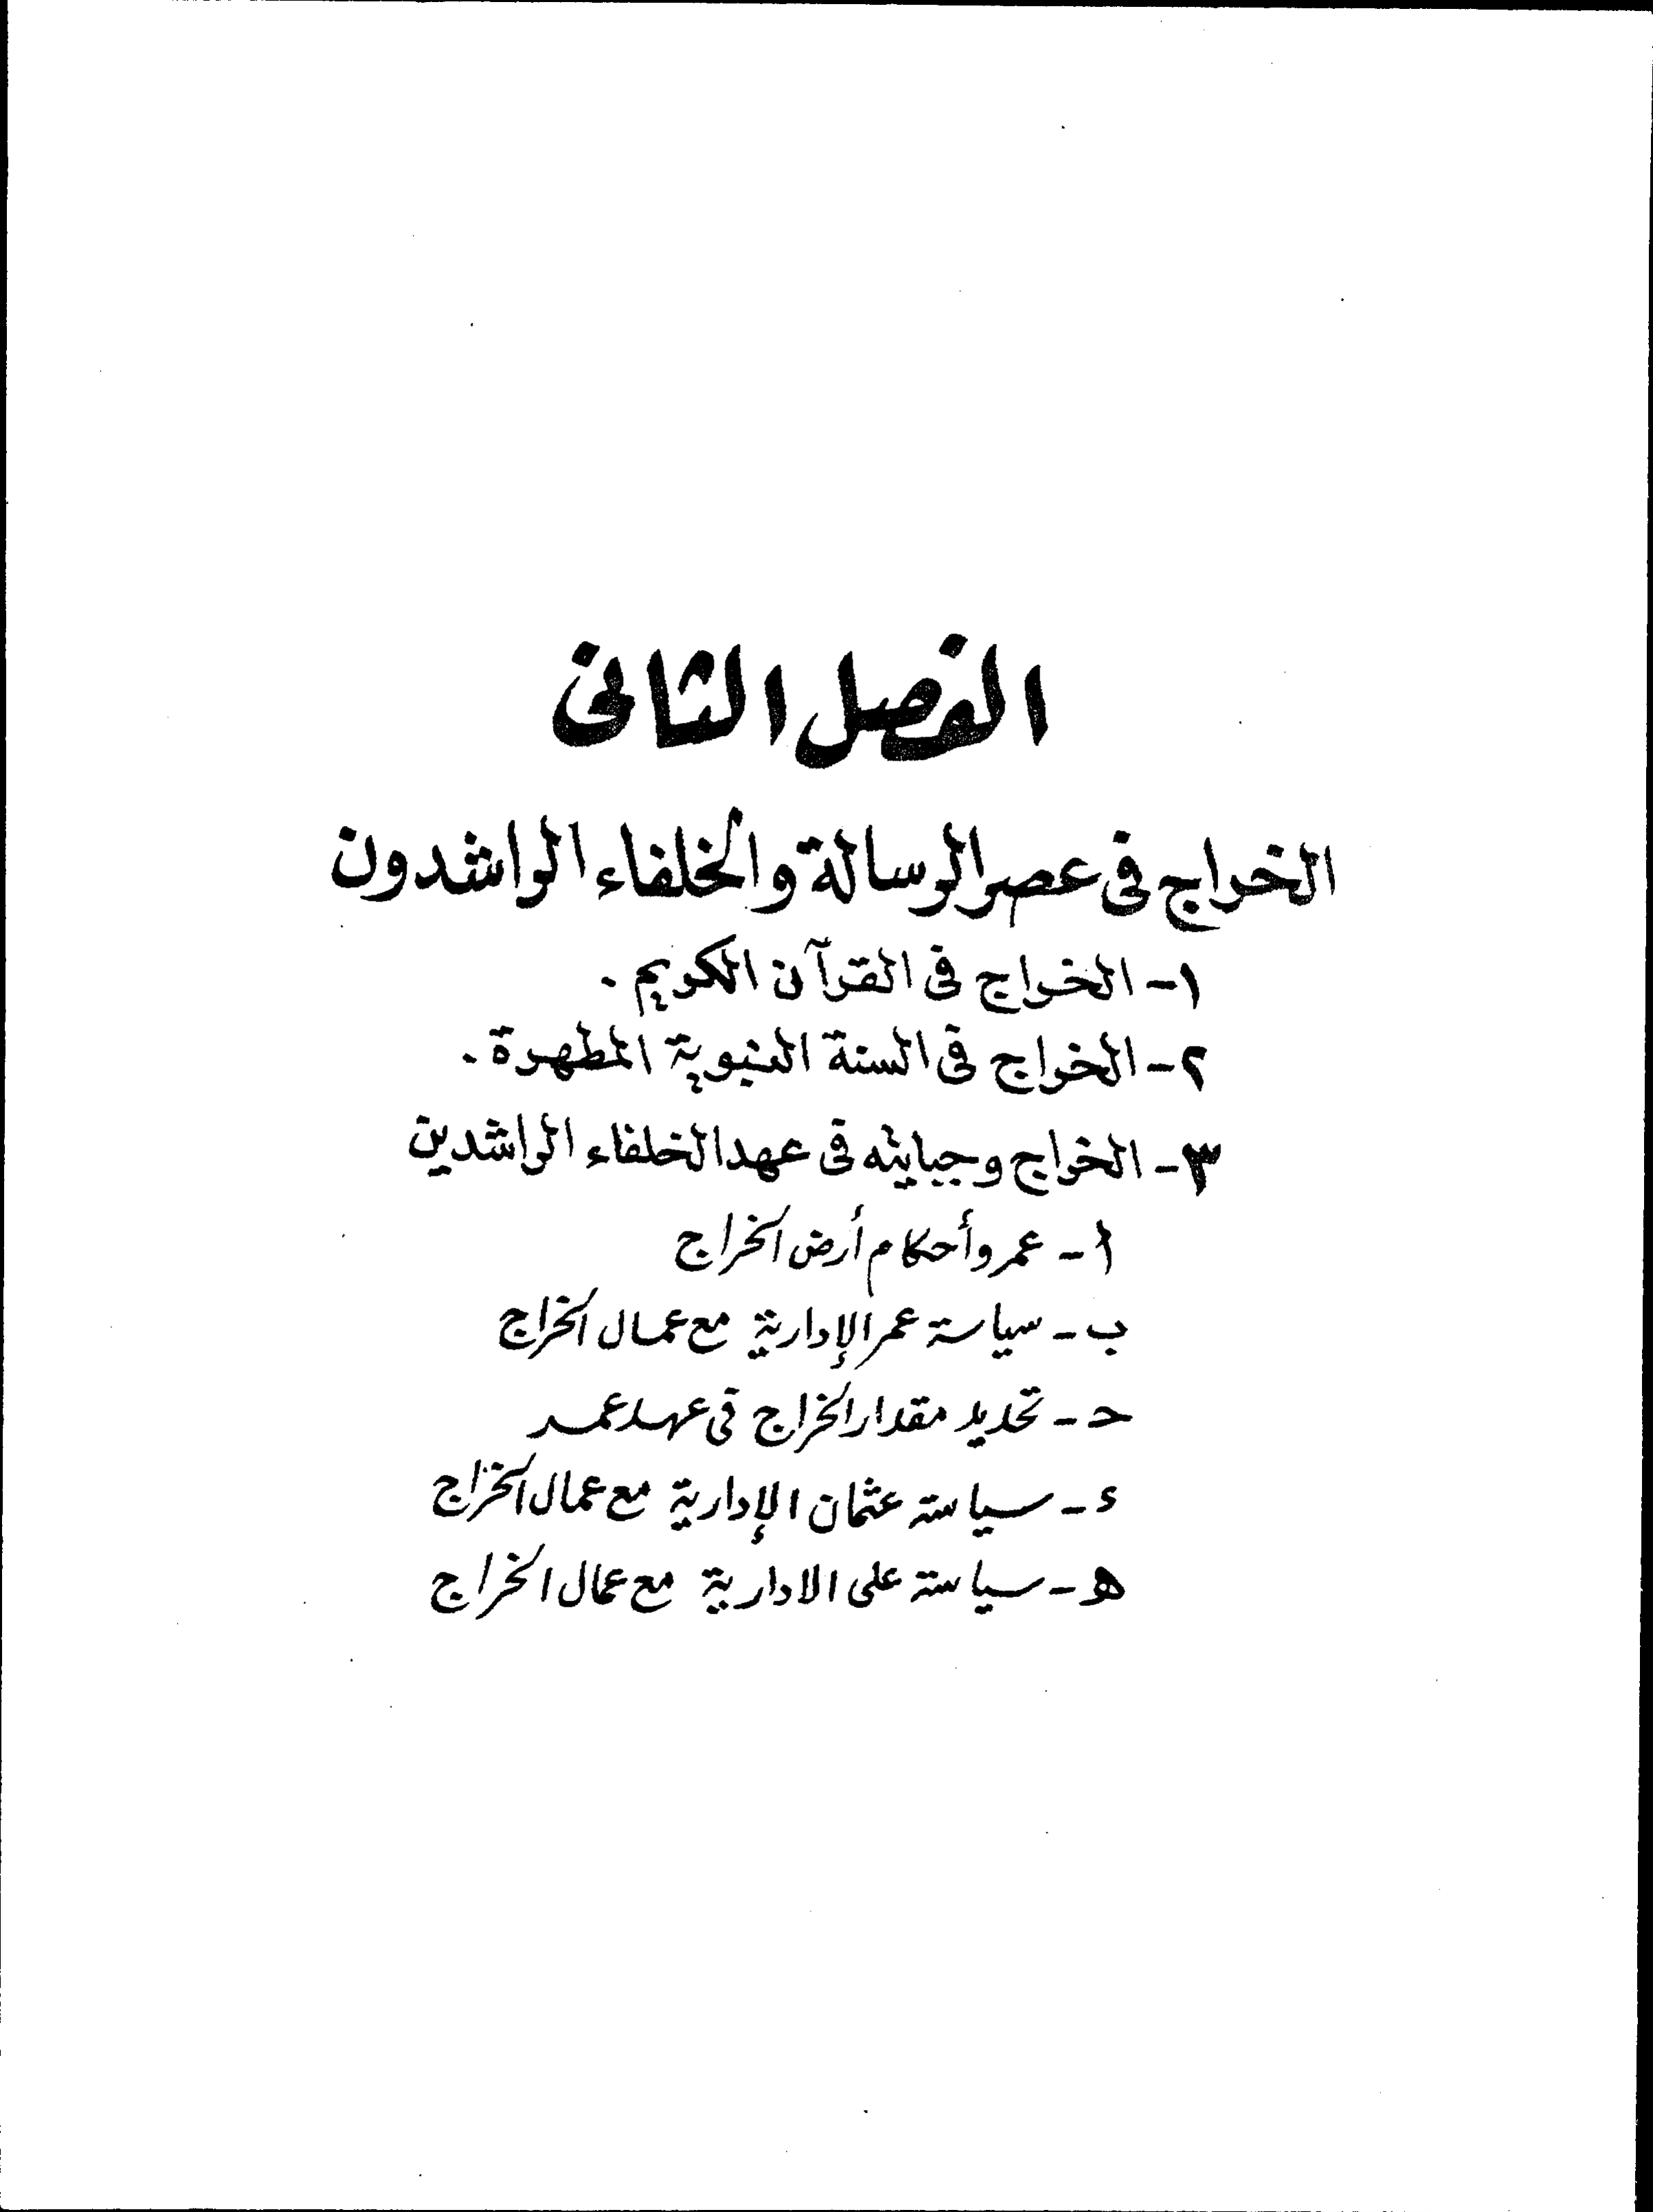 الفصل الثانى
الخراج فى عصر الرسالة والخلفاء الراشدون
١- الخراج فى القرآن الكريم .
٢- الخراج فى السنة النبوية المطهرة .
٣- الخراج وجبايته فى عهد الخلفاء الراشدين
أ - عمر وأحكام أرض الخراج
ب - سياسة عمر الإدارية مع عمال الخراج
حـ - تحديد مقدار الخراج فى عهد عمر
ء - سياسة عثمان الإدارية مع عمال الخراج
هـ - سياسة على الادارية مع عمال الخراج